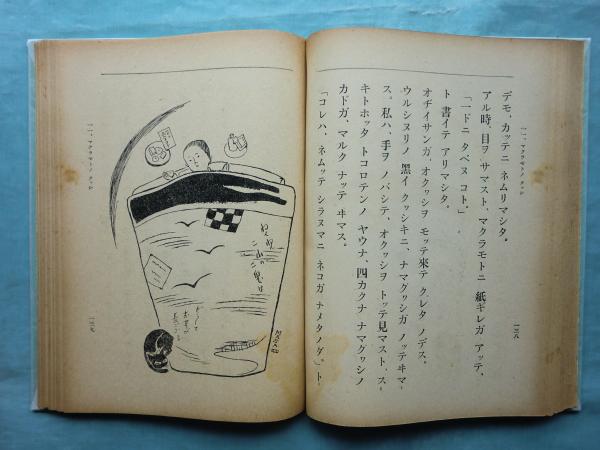 デモ、カッテニ ネムリマシタ。
アル時、目ヲ サマスト、マクラモトニ 紙キレガ アッテ、
「一ドニ タベヌ コト。」
ト 書イテ アリマシタ。
オヂイサンガ、オクヮシヲ モッテ來テ クレタ ノデス。
ウルシヌリノ 黑イ クヮシキニ、ナマグヮシガ ノッテヰマ
ス。私ハ、手ヲ ノバシテ、オクヮシヲ トッテ見マスト、ス
キトホッタ トコロテンノ ヤウナ、四カクナ ナマグヮシノ
カドガ、マルク ナッテ ヰマス。
「コレハ、ネムッテ シラヌマニ ネコガ ナメタノダ。」ト、
一三八
一三九